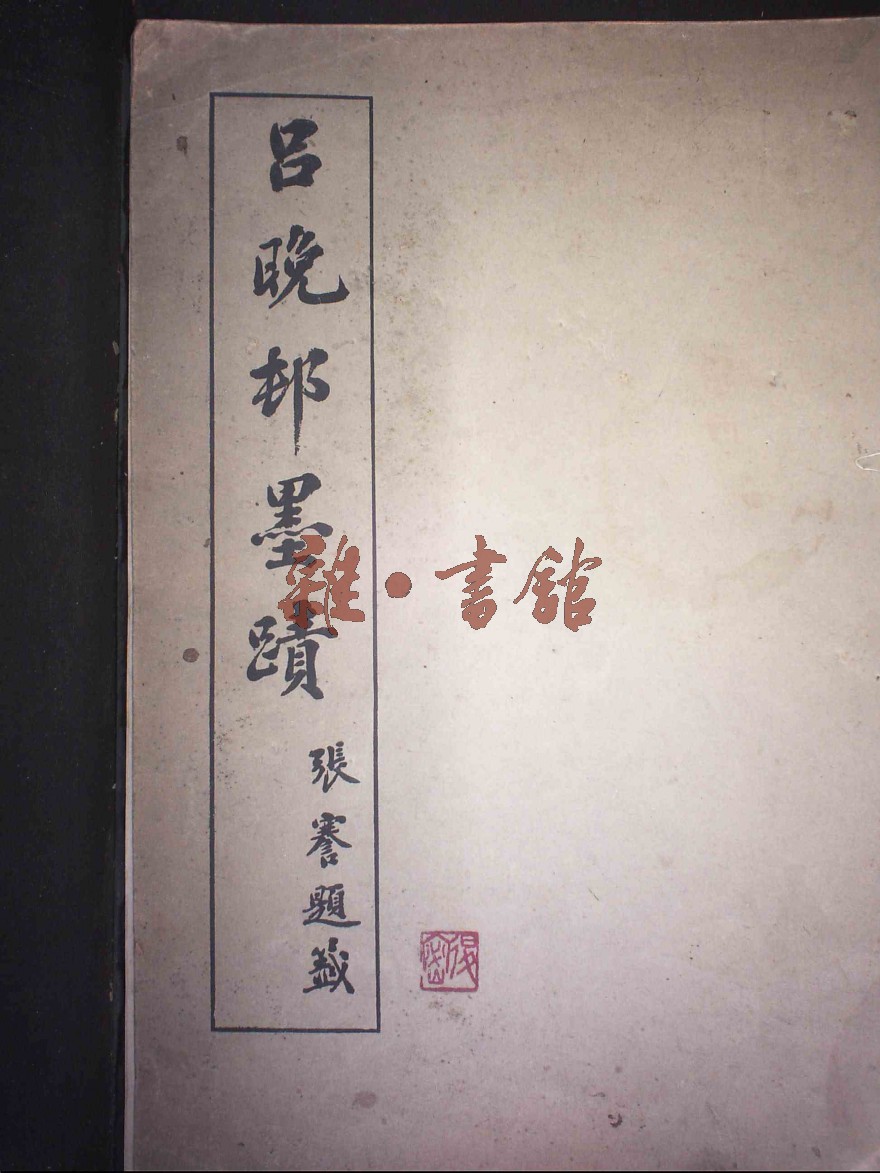 呂晚邨墨蹟
張謇題籤
雜·書館